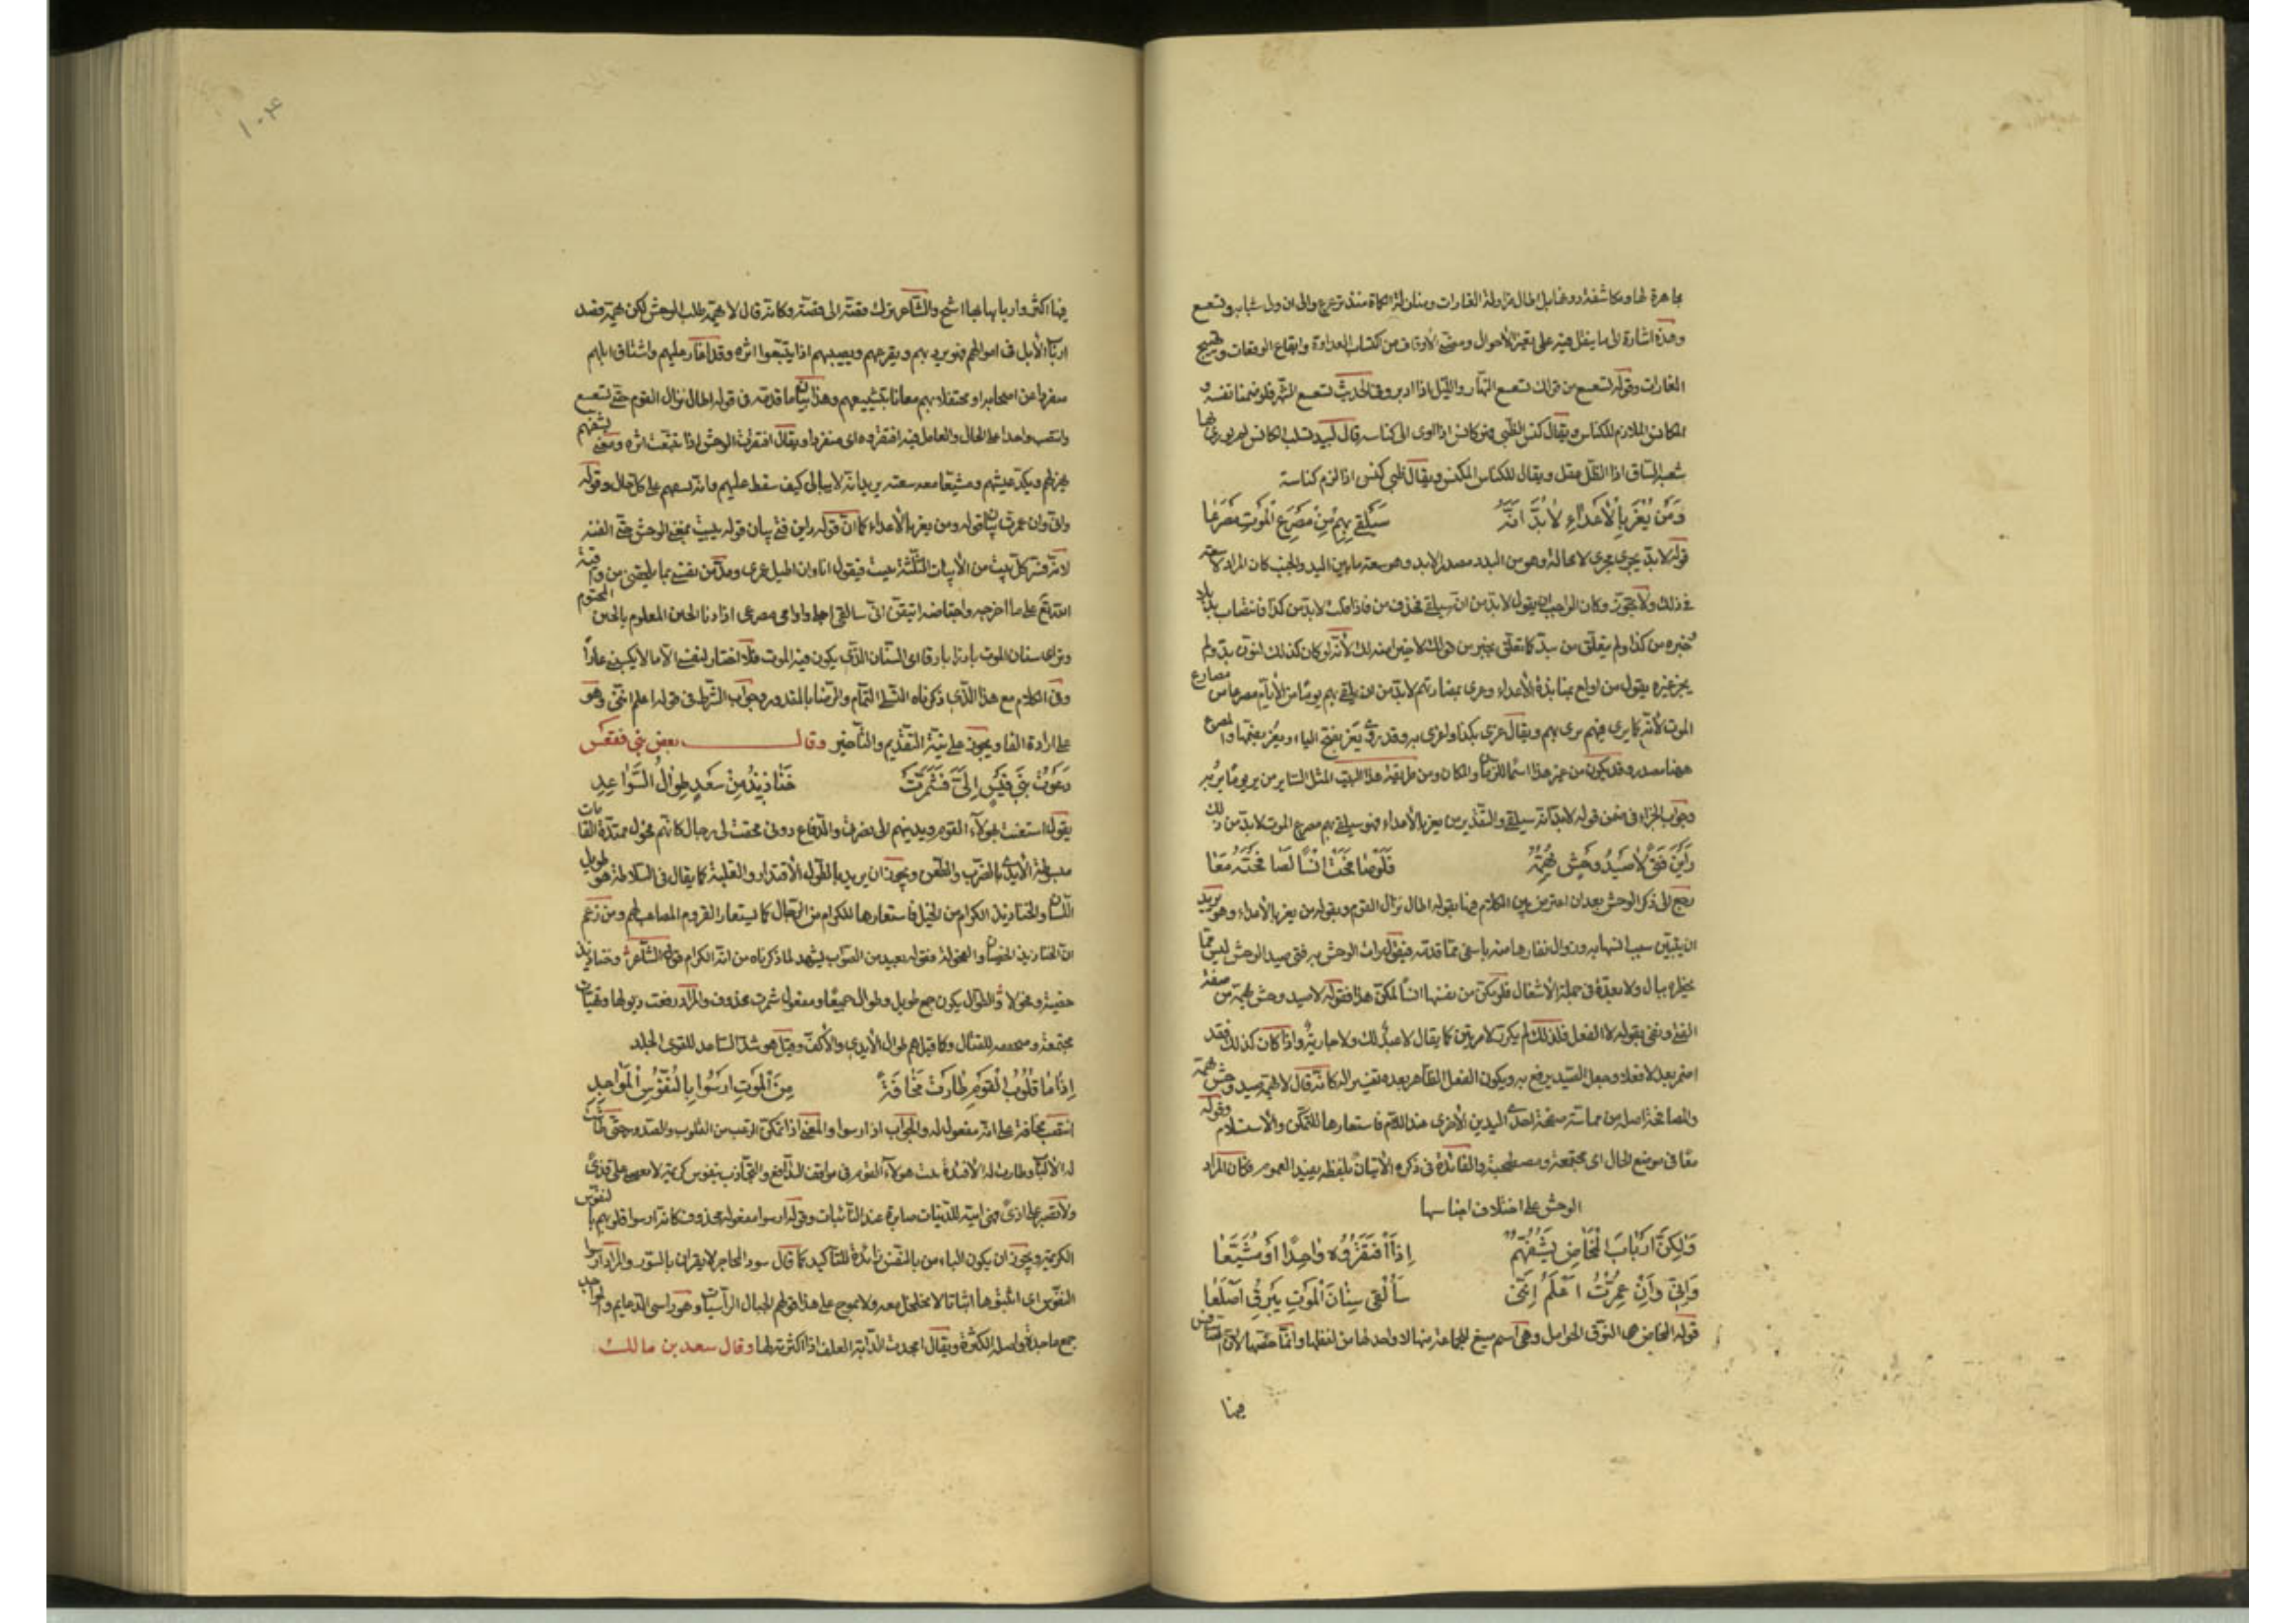 مجاهرة لها ومكاشفة دونها بل اطال مزاولة الغارات ومنازلة الكماة منذ ترعرع والى ان ولى شبابه وتسعسع
وهذه اشارة الى ما ينقل فيه على تغير الأحوال ومضى الأوقات من اكتساب العداوة وايقاع الوقعات وتهييج
الغارات وقوله تسعسع من قولك تسعسع النهار والليل اذا ادبر وفى الحديث تسعسع الشهر فلو صمنا نفسه و
المكانس الملازم للكناس ويقال كنس الظبى فهو كانس اذا اوى الى كناسه قال لبيد
شعب الساق اذا الظل عقل ويقال للكناس المكنس ويقال ظبى كنس اذا لزم كناسه
وَمَنْ يُغْرَ بِالْأَعْدَاءِ لَابُدَّ أَنَّهُ سَيَلْقَى بِهِمْ مِنْ مَصْرَعِ الْمَوْتِ مَصْرَعَا
قوله لابد يجرى مجرى لا محالة وهو من البدد مصدر الابد وهو سعة ما بين اليد والجنب كان المراد لا سعة
فى ذلك ولا تجوز وكان الواجب ان يقول لابد من ان سيلقى فحذف من فاذا قلت لابد من كذا فانتصاب بد بلا
خبره من كذا ولم يتعلق من ببد كما تعلق بخير من قولك لا خيرا من ذلك لأنه لو كان كذلك لنون بد ولم
يجز غيره يقول من اولع بمنابذة الأعداء وغرى بمضارتهم لابد من ان يلقى بهم يوما من الأيام مصرعا من مصارع
الموت لأنه كما يرى فيهم يرى بهم ويقال غرى بكذا واغرى به وقد روى يغر بفتح الياء ويغر بضمها والمصرع
ههنا مصدر وقد يكون من غير هذا اسما للزمان والمكان ومن طريقة هذا البيت المثل السائر من ير يوما ير به
وجواب الجزاء فى ضمن قوله لابد انه سيلقى والتقدير من يغر بالأعداء فهو سيلقى بهم مصرع الموت لابد من ذلك
رَأَيْنَ فَتًى لَا صَيْدُ وَحْشٍ يُهِمُّهُ فَلَوْ صَافَحَتْ إِنْسًا لَصَافَحْنَهُ مَعَا
رجع الى ذكر الوحش بعد ان اعترض بين الكلام فيها بقوله اطال نزال القوم وبقوله من يغر بالأعداء وهو يريد
ان يتبين سبب انسها به وزوال نفارها منه باسفى مما قدمه فيقول رأت الوحش به فتى صيد الوحش ليس مما
يخطره ببال ولا يعده فى جملة الأشغال فلو تمكن من نفسها انسا لمكن هذا فقوله لا صيد وحش يهمه من صفة
الفتى ونفى بقوله لا الفعل فلذلك لم يكرر لا مرتين كما يقال لا عبد لك ولا جارية واذا كان كذلك فقد
اضمر بعد لا فعلا وجعل الصيد يرتفع به ويكون الفعل الظاهر بعده تفسيرا له كانه قال لا يهمه صيد وحش يهمه
والمصافحة اصله من مماسة صفحة احدى اليدين الأخرى عند السلام فاستعارها للتمكن والاستسلام وقوله
معا فى موضع الحال اى مجتمعة ومصطحبة والفائدة فى ذكره الاتيان بلفظ يفيد العموم فكان المراد
الوحش على اختلاف اجناسها
وَلٰكِنَّ أَرْبَابَ الْمَخَاضِ يَشُفُّهُمْ إِذَا افْتَقَرُوهُ وَاحِدًا أَوْ مُشَيَّعَا
وَإِنِّى وَإِنْ عُمِّرْتُ أَعْلَمُ أَنَّنِى سَأَلْقَى سِنَانَ الْمَوْتِ يَبْرُقُ أَصْلَعَا
قوله المخاض هى النوق الحوامل وهى اسم صيغ للجماعة منها لا واحد لها من لفظها وانما خصها لان التنافس
فيها
١٠٤
فيها اكثر واربابها بها اشح والشاعر ترك قصة الى قصة وكانه قال لا يهمه طلب الوحش لكن همه قصد
ارباب الأبل فى اموالهم فهو يريد بهم ويفزعهم ويصيبهم اذا يتبعوا اثره وقد اغار عليهم واستاق ابلهم
منفردا عن اصحابه او محتفلا بهم معانا بتشييعهم وهذا بيان ما قدمه فى قوله اطال نزال القوم حتى تسعسع
وانتصب واحدا على الحال والعامل فيه افتقروه اى منفردا ويقال افتقرت الوحش اذا تتبعت اثره ومعنى يشفهم
يهزلهم ويكد عيشهم ومشيعا معه سعته يريد انه لا يبالى كيف سقط عليهم وانه يسعهم على كل حال وقوله
وانى وان عمرت بيان قوله ومن يغر بالأعداء كما ان قوله راين فتى بيان قوله يبيت بمغنى الوحش حتى الفنه
لانه فسر كل بيت من الأبيات الثلثة ببيت فيقول انا وان اطيل عمرى
وترائى سنان الموت بارزا بارقا اى السنان الذى يكون فيه الموت فلا اختار لنفسى الا ما لا يكسبنى عارا
وفى الكلام مع هذا الذى ذكرناه التسلى التمام والرضا بالمقدور وجواب الشرط فى قوله اعلم اننى وهو
على ارادة الفا ويجوز على نية التقديم والتأخير وقال بعض بنى فقعس
دَعَوْتُ بَنِى قَيْسٍ إِلَىَّ فَشَمَّرَتْ خَنَاذِيذُ مِنْ سَعْدٍ طِوَالُ السَّوَاعِدِ
يقول استغثت بهؤلاء القوم ودعوتهم الى نصرتى والدفاع دونى فخفت لى رجال كانهم فحول ممتدة القامات
مبسوطة الأيدى بالضرب والطعن ويجوز ان يريد بالطول الأقتدار والغلبة كما يقال فى السلاطة هو طويل
اللسان والخناذيذ الكرام من الخيل فاستعارها للكرام من الرجال كما يستعار القروم المصاعب لهم ومن زعم
ان الخناذيذ الخصيان والفحولة فقوله بعيد من الصواب يشهد لما ذكرناه من انه الكرام قول الشاعر وخناذيذ
خصية وفحولا والطوال يكون جمع طويل وطوال جميعا ومفعول شمرت محذوف والمراد رفعت ذيولها وتهيأت
مجتمعة ومستعدة للقتال وكما قيل هم طوال الأيدى والأكف وقيل هو شد الساعد للقوى الجلد
إِذَا مَا قُلُوبُ الْقَوْمِ طَارَتْ مَخَافَةً مِنَ الْمَوْتِ أَرْسَوْا بِالنُّفُوسِ الْمَوَاجِدِ
انتصب مخافة على انه مفعول له والجواب اذا ارسوا والمعنى اذا تمكن الرعب من القلوب والصدور حتى طاشت
له الألباب وطارت له الأفئدة ثبت هؤلاء القوم فى مواقف التدافع والتجاذب بنفوس كريمة لا تغضى على قذى
ولا تصبر على اذى فهى ابية للدنيات صابرة عند النائبات وقوله ارسوا مفعوله محذوف كانه ارسوا قلوبهم بالنفوس
الكريمة ويجوز ان يكون الباء من بالنفس زائدة للتأكيد كما قال سود المحاجر لا يقرأن بالسور والمراد ارسوا
النفوس اى اثبتوها اثباتا لا يتخلخل معه ولا يموج على هذا قولهم للجبال الراسيات وهو راسى الدعايم والمواجد
جمع ماجدة واصله الكثرة ويقال امجدت الدابة العلف اذا اكثرته لها وقال سعد بن مالك